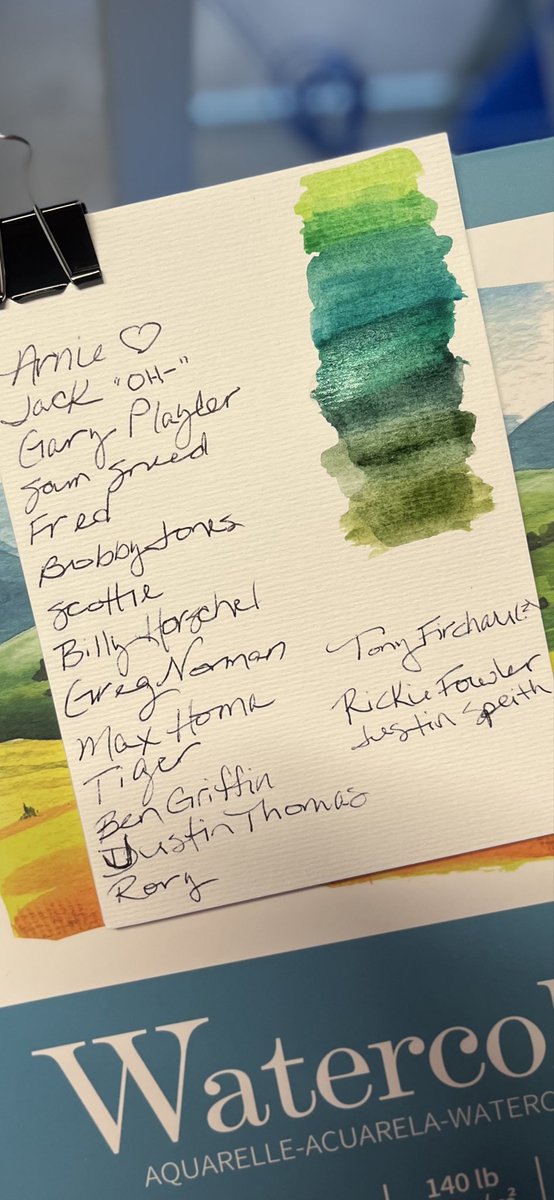 Arnie ♡
Jack "OH-"
Gary Player
Sam Snead
Fred
Bobby Jones
Scottie
Billy Horschel
Greg Norman
Max Homa
Tiger
Ben Griffin
Justin Thomas
Rory
Tony
Rickie Fowler
Justin Speith
Waterco
AQUARELLE-ACUARELA-WATERC
140 lb